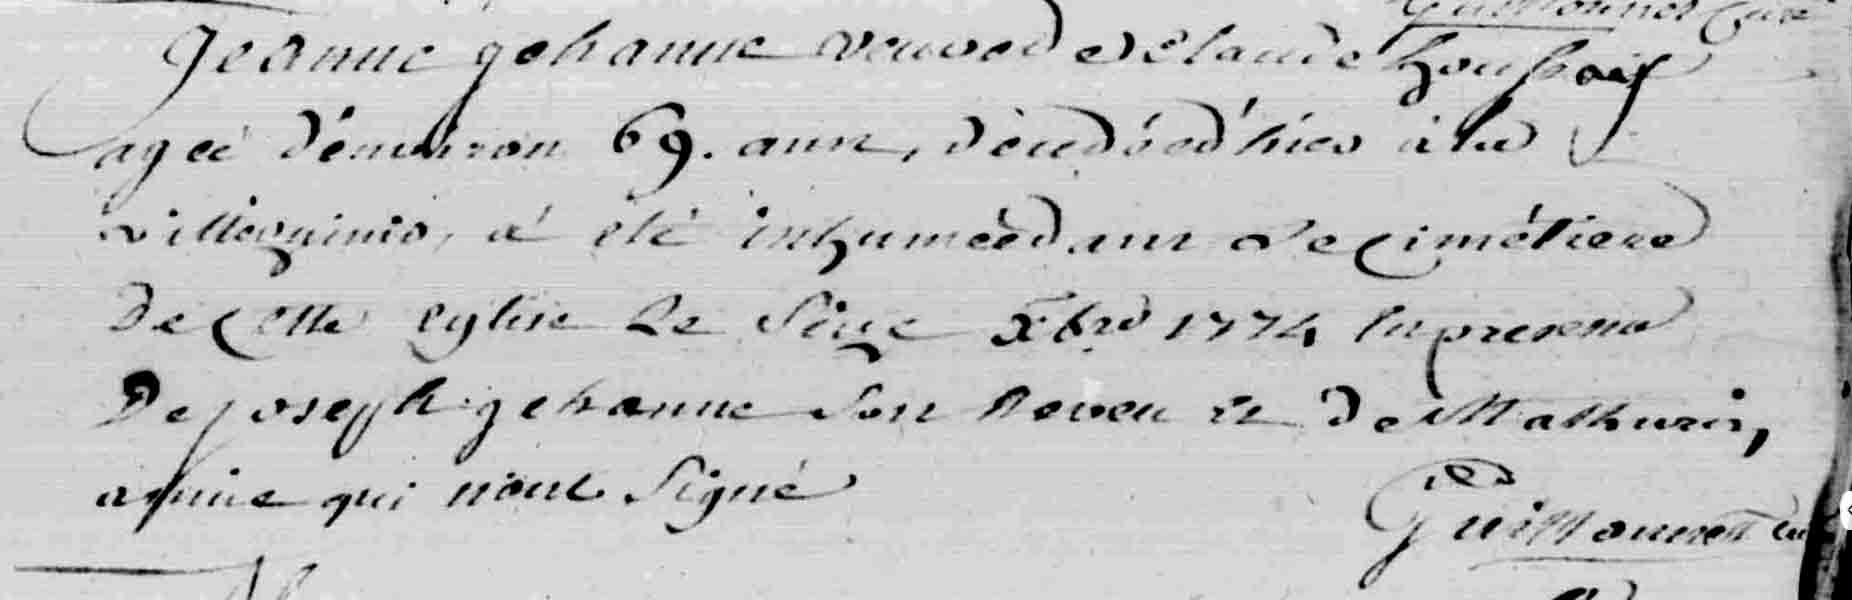 Guillonnet Curé
Jeanne gehanne veuve de Claude houssaif
agée d'environ 69. ans, décédée d'hier à la
villeguinio, a été inhumée dans le cimétiere
de cette eglise le Seize Xbre 1774 En presence
De joseph gehanne Son neveu et de Mathurin,
qui n'ont Signé
Guillonnet